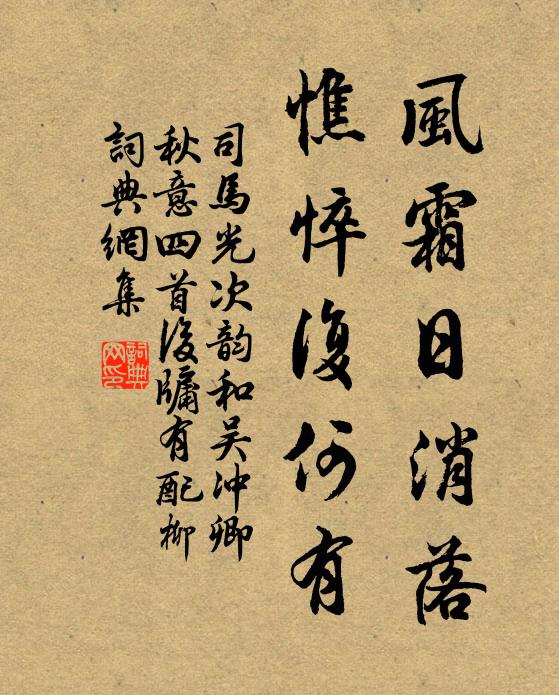 風霜日消落
憔悴復何有
司馬光次韵和吴冲卿
秋意四首後牖有配柳
詞典網集
詞典
网印